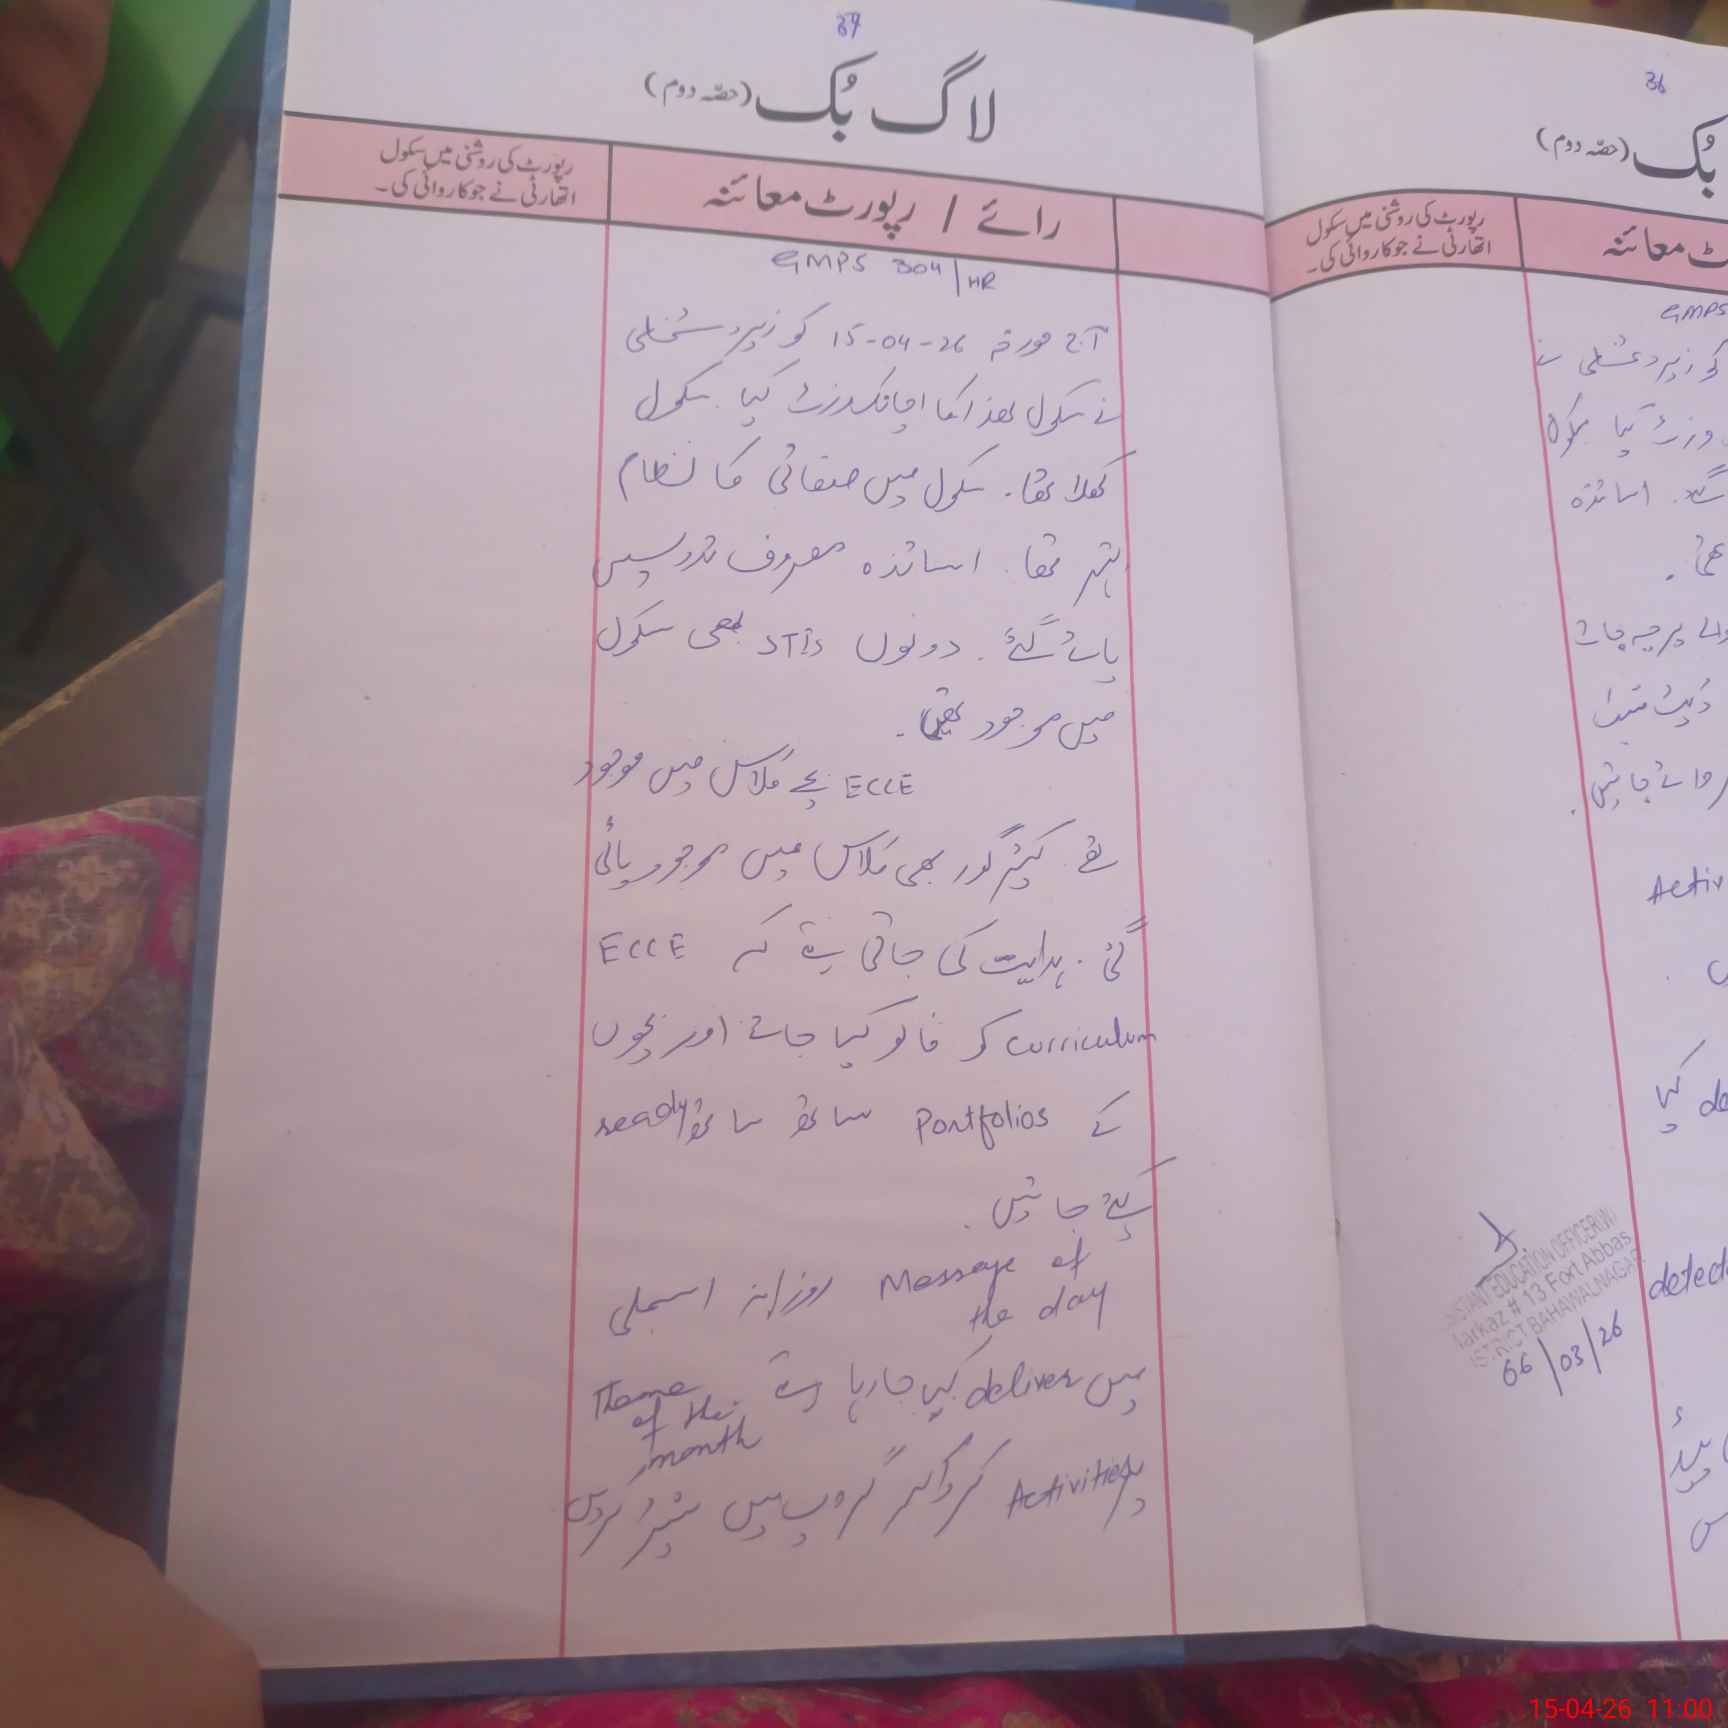 37
لاگ بُک (حصّہ دوم)
رائے / رپورٹ معائنہ
رپورٹ کی روشنی میں سکول
اتھارٹی نے جو کاروائی کی۔
GMPS 304/HR
آج مورخہ 15-04-26 کو زیر دستخطی
نے سکول ھذا کا اچانک وزٹ کیا۔ سکول
کھلا تھا۔ سکول میں صفائی کا نظام
بہتر تھا۔ اساتذہ مصروف تدریس
پائے گئے۔ دونوں بھی سکول
میں موجود تھیں۔
ECCE بچے کلاس میں موجود
تھے۔ کیئر گور بھی کلاس میں موجود پائی
گئی۔ ہدایت کی جاتی ہے کہ ECCE
curriculum کو فالو کیا جائے اور بچوں
کے Portfolios ساتھ ساتھ ready
کیئے جائیں۔
Message of the day روزانہ اسمبلی
میں deliver کیا جا رہا ہے Theme of the month
پر Activities کرواکر گروپ میں شیئر کریں
36
بُک (حصّہ دوم)
ٹ معائنہ
رپورٹ کی روشنی میں سکول
اتھارٹی نے جو کاروائی کی۔
GMPS
کو زیر دستخطی نے
وزٹ کیا سکول
گئے۔ اساتذہ
تھی۔
والے پرچہ جات
جائیں۔
Activ
کیا de
detect
ISTANT EDUCATION OFFICER(W)
Markaz # 13 Fort Abbas
ISTRICT BAHAWALNAGAR
06/03/26
15-04-26 11:00